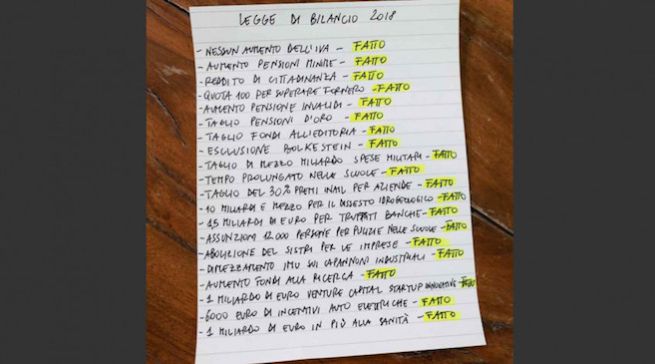 LEGGE DI BILANCIO 2018
- NESSUN AUMENTO DELL'IVA - FATTO
- AUMENTO PENSIONI MINIME - FATTO
- REDDITO DI CITTADINANZA - FATTO
- QUOTA 100 PER SUPERARE FORNERO - FATTO
- AUMENTO PENSIONE INVALIDI - FATTO
- TAGLIO PENSIONI D'ORO - FATTO
- TAGLIO FONDI ALL'EDITORIA - FATTO
- ESCLUSIONE BOLKESTEIN - FATTO
- TAGLIO DI MEZZO MILIARDO SPESE MILITARI - FATTO
- TEMPO PROLUNGATO NELLE SCUOLE - FATTO
- TAGLIO DEL 30% PREMI INAIL PER AZIENDE - FATTO
- 10 MILIARDI E MEZZO PER IL DISSESTO IDROGEOLOGICO - FATTO
- 1,5 MILIARDI DI EURO PER TRUFFATI BANCHE - FATTO
- ASSUNZIONI 12.000 PERSONE PER PULIZIE NELLE SCUOLE - FATTO
- ABOLIZIONE DEL SISTRI PER LE IMPRESE - FATTO
- DIMEZZAMENTO IMU SUI CAPANNONI INDUSTRIALI - FATTO
- AUMENTO FONDI ALLA RICERCA - FATTO
- 1 MILIARDO DI EURO VENTURE CAPITAL STARTUP INNOVATIVE - FATTO
- 6000 EURO DI INCENTIVI AUTO ELETTRICHE - FATTO
- 1 MILIARDO DI EURO IN PIÙ ALLA SANITÀ - FATTO